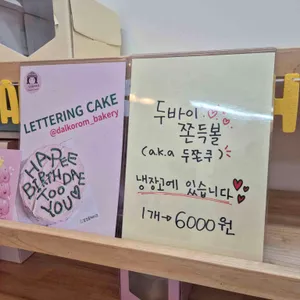 LETTERING CAKE
@dalkorom_bakery
HAPPEE
BIRTHDAE
TOO
YOU
두바이
쫀득볼
(a.k.a 두쫀쿠)
냉장고에 있습니다
1개→6000원